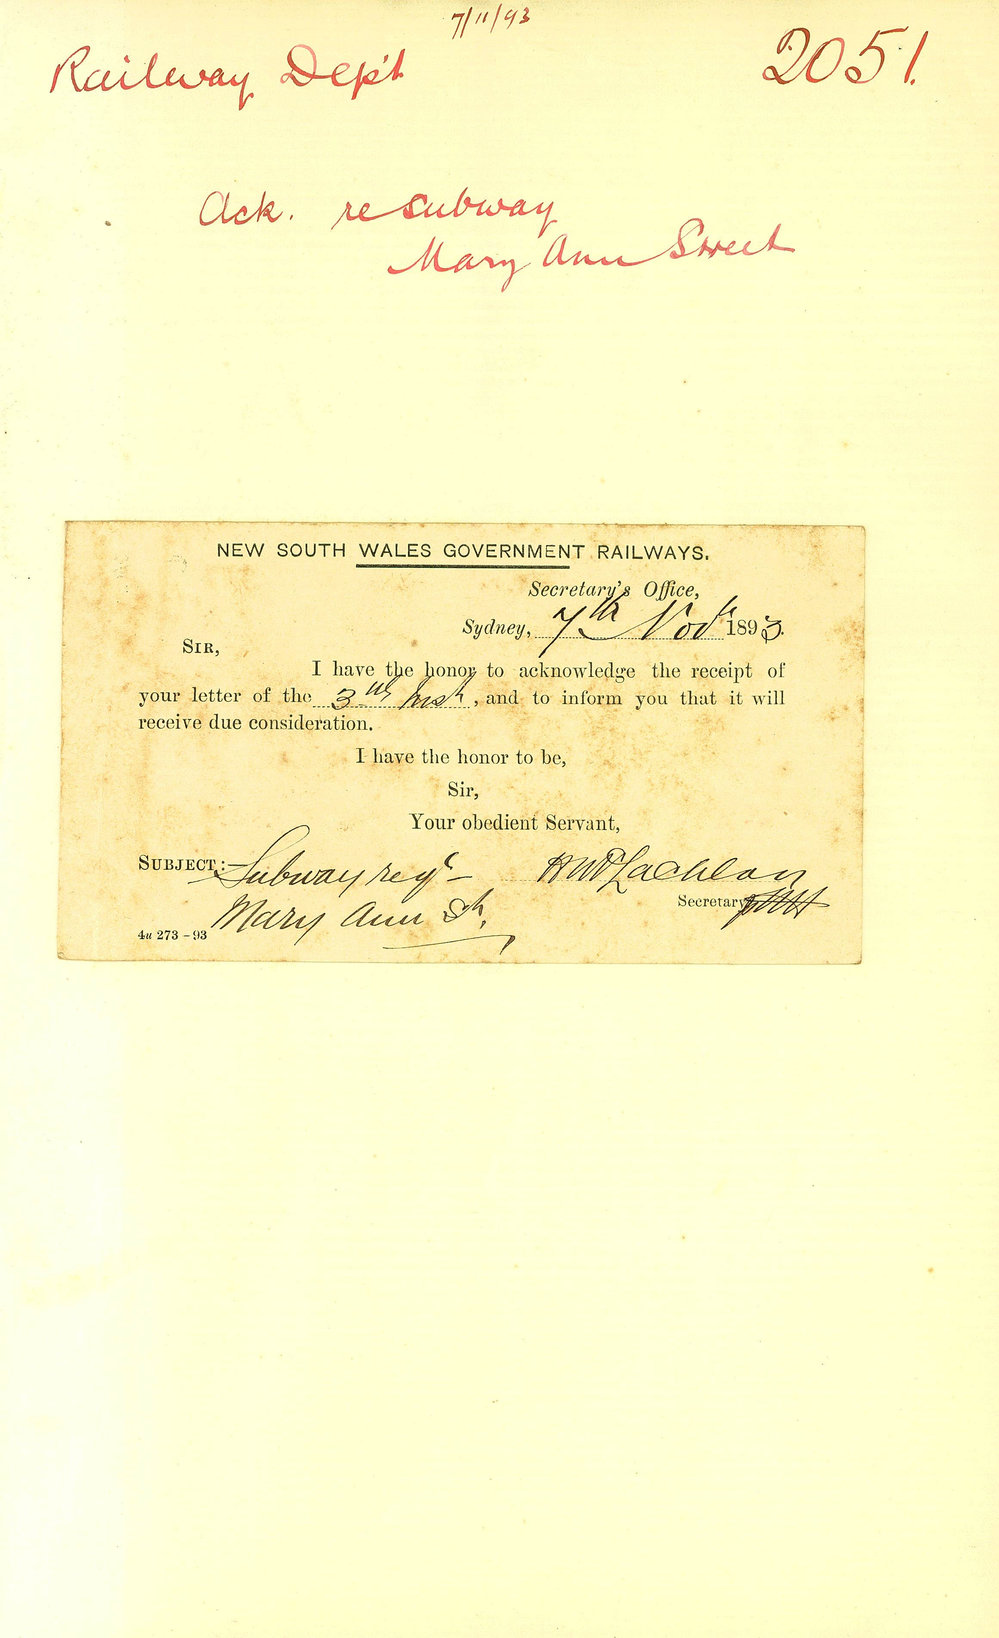 7/11/93
Railway Dep't 2051.
Ack. re subway
Mary Ann Street
NEW SOUTH WALES GOVERNMENT RAILWAYS.
Secretary's Office,
Sydney, 7th Novr 1893.
SIR,
I have the honor to acknowledge the receipt of
your letter of the 3rd Inst, and to inform you that it will
receive due consideration.
I have the honor to be,
Sir,
Your obedient Servant,
SUBJECT:— Subway reqd — H McLachlan
Mary Ann St. Secretary
4u 273-93